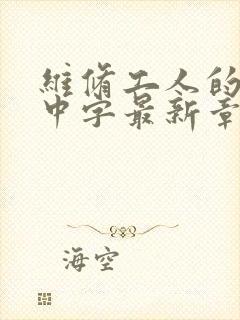 維脩工人的
中字最新章
海空